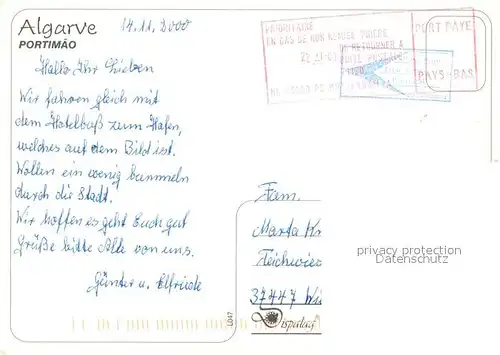 Algarve
PORTIMÃO
14.11.2000
Hallo, Ihr Lieben
Wir fahren gleich mit
dem Hotelbuß zum Hafen,
welches auf dem Bild ist.
Wollen ein wenig bummeln
durch die Stadt.
Wir hoffen es geht Euch gut
Grüße bitte Alle von uns.
Günter u. Elfriede
PRIORITAIRE
EN CAS DE NON REMISE PRIERE
DE RETOURNER A
PORT PAYE
PAYS-BAS
Fam.
Marta Kr
Teichwies
37447 Wi
privacy protection
Datenschutz
L047
Dispalag